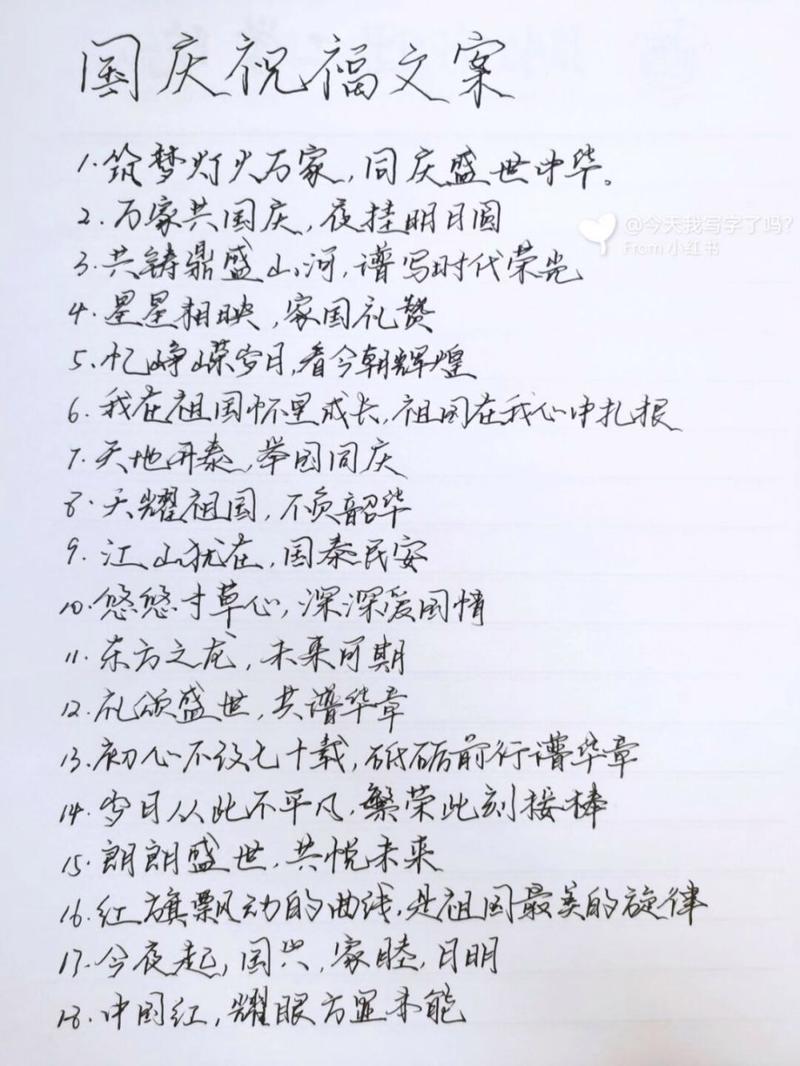 国庆祝福文案
1.筑梦灯火万家,同庆盛世中华。
2.万家共国庆,夜挂明月圆
@今天我写字了吗?
From小红书
3.共铸鼎盛山河,谱写时代荣光
4.星星相映,家国礼赞
5.忆峥嵘岁月,看今朝辉煌
6.我在祖国怀里成长,祖国在我心中扎根
7.天地开泰,举国同庆
8.天耀祖国,不负韶华
9.江山犹在,国泰民安
10.悠悠寸草心,深深爱国情
11.东方之龙,未来可期
12.礼颂盛世,共谱华章
13.初心不改七十载,砥砺前行谱华章
14.岁月从此不平凡,繁荣此刻接棒
15.朗朗盛世,共悦未来
16.红旗飘动的曲线,是祖国最美的旋律
17.今夜起,国兴,家睦,月明
18.中国红,耀眼方显